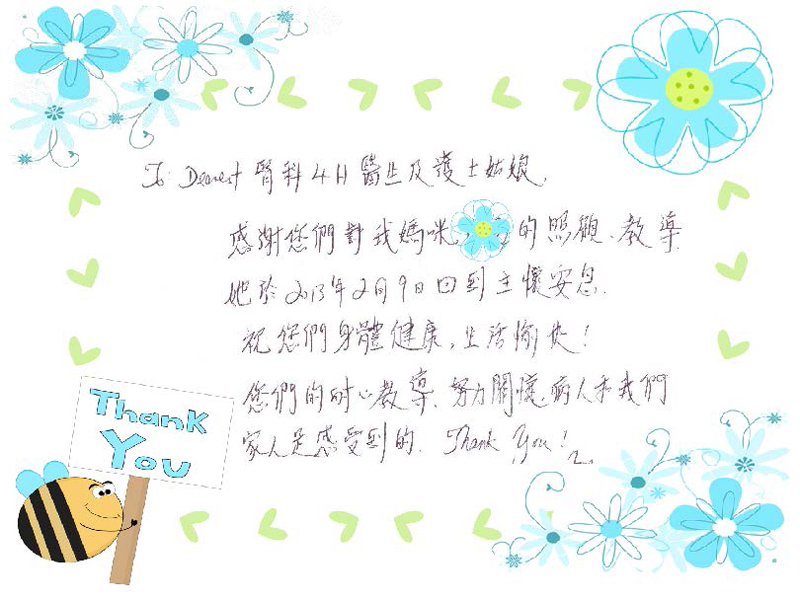 To: Dearest 腎科4H醫生及護士姑娘,
感謝您們對我媽咪, 的照顧、教導
她於2013年2月9日回到主懷安息.
祝您們身體健康,生活愉快!
您們的耐心教導、努力關懷,病人和我們
家人是感受到的. Thank You!
Thank
You